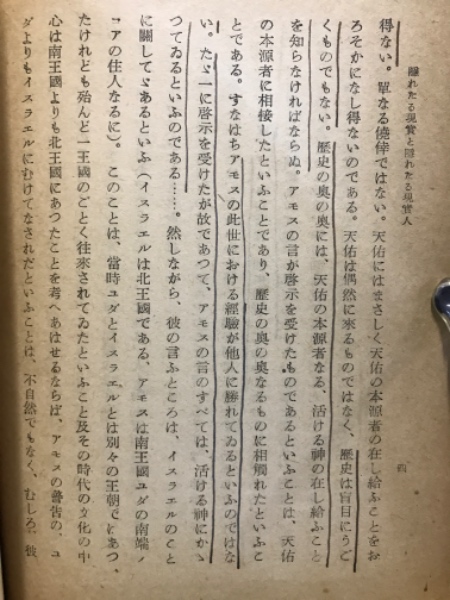 隱れたる現實と隱れたる現實人
四
得ない。單なる僥倖ではない。天佑にはまさしく天佑の本源者の在し給ふことをお
ろそかになし得ないのである。天佑は偶然に來るものではなく、歷史は盲目にうご
くものでもない。歷史の奧の奧には、天佑の本源者なる、活ける神の在し給ふこと
を知らなければならぬ。アモスの言が啓示を受けたものであるといふことは、天佑
の本源者に相接したといふことであり、歷史の奧の奧なるものに相觸れたといふこ
とである。すなはちアモスの此世における經驗が他人に勝れてゐるといふのではな
い。たゞ一に啓示を受けたが故であつて、アモスの言のすべては、活ける神にかゝ
つてゐるといふのである……。然しながら、彼の言ふところは、イスラエルのこと
に關してゞあるといふ(イスラエルは北王國である、アモスは南王國ユダの南端ノ
コアの住人なるに)。このことは、當時ユダとイスラエルとは別々の王朝でにあつ、
たけれども殆んど一王國のごとく往來されてゐたといふこと及その時代の文化の中
心は南王國よりも北王國にあつたことを考へあはせるならば、アモスの警告の、ユ
ダよりもイスラエルにむけてなされたといふことは、不自然でもなく、むしろ、彼